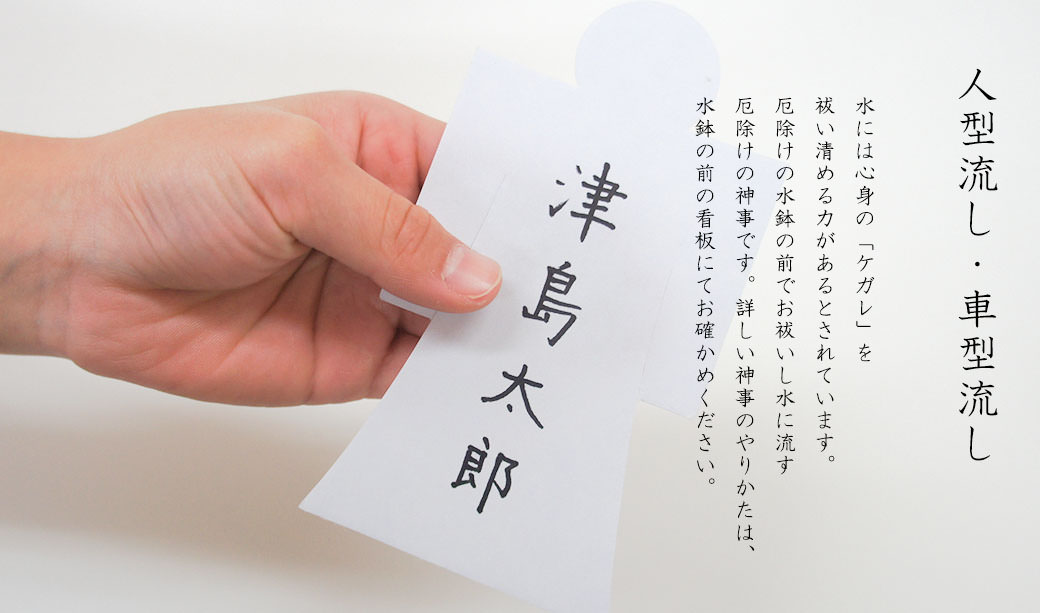 人型流し・車型流し
水には心身の「ケガレ」を
祓い清める力があるとされています。
厄除けの水鉢の前でお祓いし水に流す
厄除けの神事です。詳しい神事のやりかたは、
水鉢の前の看板にてお確かめください。
津島太郎